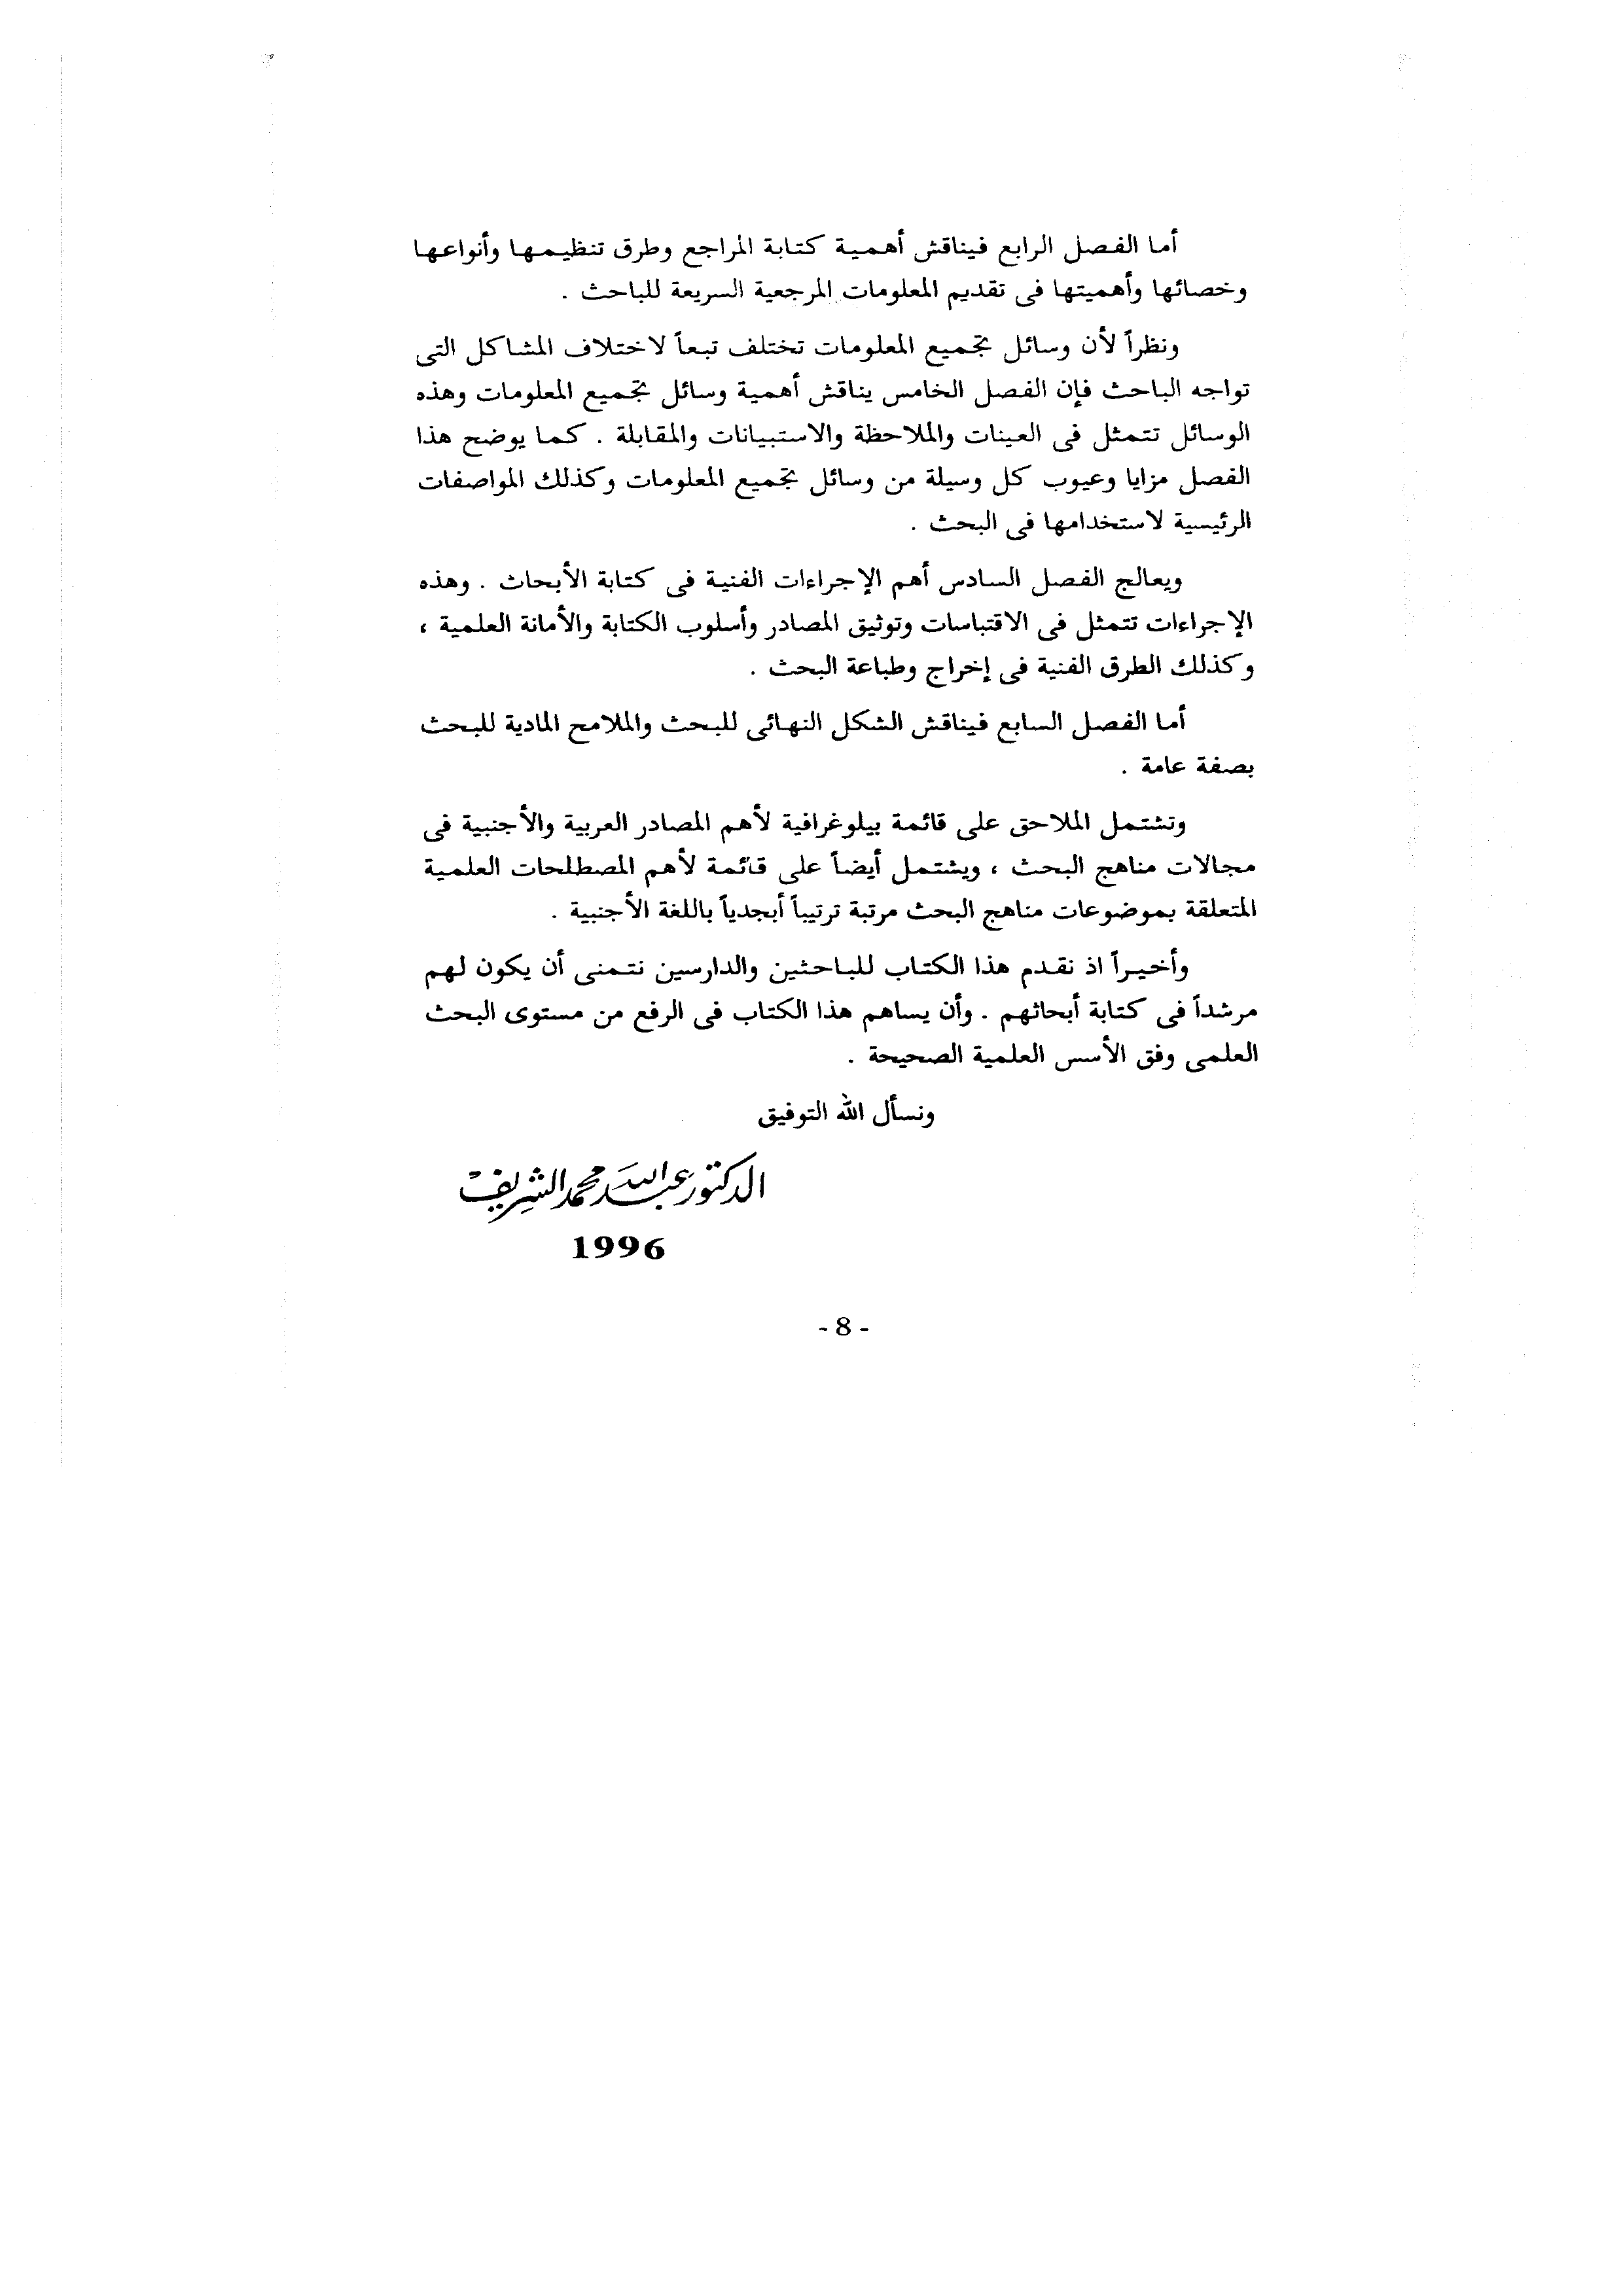 أما الفصل الرابع فيناقش أهمية كتابة المراجع وطرق تنظيمها وأنواعها
وخصائها وأهميتها فى تقديم المعلومات المرجعية السريعة للباحث .
ونظراً لأن وسائل تجميع المعلومات تختلف تبعاً لاختلاف المشاكل التى
تواجه الباحث فإن الفصل الخامس يناقش أهمية وسائل تجميع المعلومات وهذه
الوسائل تتمثل فى العينات والملاحظة والاستبيانات والمقابلة . كما يوضح هذا
الفصل مزايا وعيوب كل وسيلة من وسائل تجميع المعلومات وكذلك المواصفات
الرئيسية لاستخدامها فى البحث .
ويعالج الفصل السادس أهم الإجراءات الفنية فى كتابة الأبحاث . وهذه
الإجراءات تتمثل فى الاقتباسات وتوثيق المصادر وأسلوب الكتابة والأمانة العلمية ،
وكذلك الطرق الفنية فى إخراج وطباعة البحث .
أما الفصل السابع فيناقش الشكل النهائى للبحث والملامح المادية للبحث
بصفة عامة .
وتشتمل الملاحق على قائمة بيلوغرافية لأهم المصادر العربية والأجنبية فى
مجالات مناهج البحث ، ويشتمل أيضاً على قائمة لأهم المصطلحات العلمية
المتعلقة بموضوعات مناهج البحث مرتبة ترتيباً أبجدياً باللغة الأجنبية .
وأخيراً اذ نقدم هذا الكتاب للباحثين والدارسين نتمنى أن يكون لهم
مرشداً فى كتابة أبحاثهم . وأن يساهم هذا الكتاب فى الرفع من مستوى البحث
العلمى وفق الأسس العلمية الصحيحة .
ونسأل الله التوفيق
الدكتور عبد الله محمد الشريف
1996
- 8 -